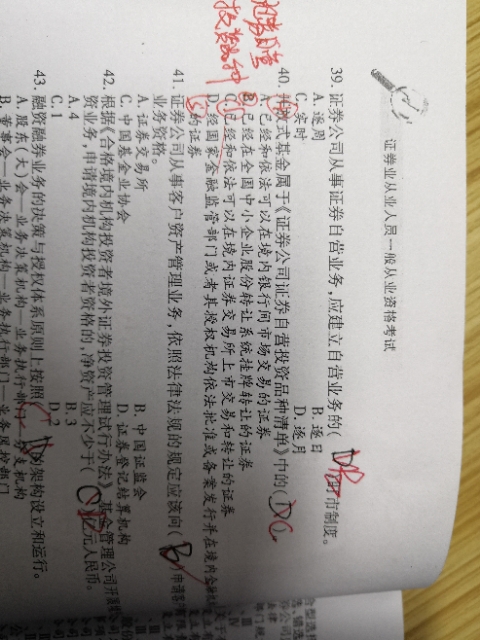 证券业从业人员一般从业资格考试
39. 证券公司从事证券自营业务,应建立自营业务的( DB盯市制度。
A. 逐周 B. 逐日
C. 实时 D. 逐月
40. 式基金属于《证券公司证券自营投资品种清单》中的( DC。
A. 已经和依法可以在境内银行间市场交易的证券
B. 已经在全国中小企业股份转让系统挂牌转让的证券
C. 已经和依法可以在境内证券交易所上市交易和转让的证券
D. 经国家金融监管部门或者其授权机构依法批准或备案发行并在境内金融
的证券
41. 证券公司从事客户资产管理业务,依照法律法规的规定应该向( B 申请客户
业务资格。
A. 证券交易所 B. 中国证监会
C. 中国基金业协会 D. 证券登记结算机构
42. 根据《合格境内机构投资者境外证券投资管理试行办法》基金管理公司开展
资业务,申请境内机构投资者资格的,净资产应不少于( C 元人民币。
A. 4 B. 3
C. 1 D. 2
43. 融资融券业务的决策与授权体系原则上按照 D 的架构设立和运行。
A. 股东(大)会—业务决策机构—业务执行部门—分支机构
B. 董事会—业务决策机构—业务执行部门—业务